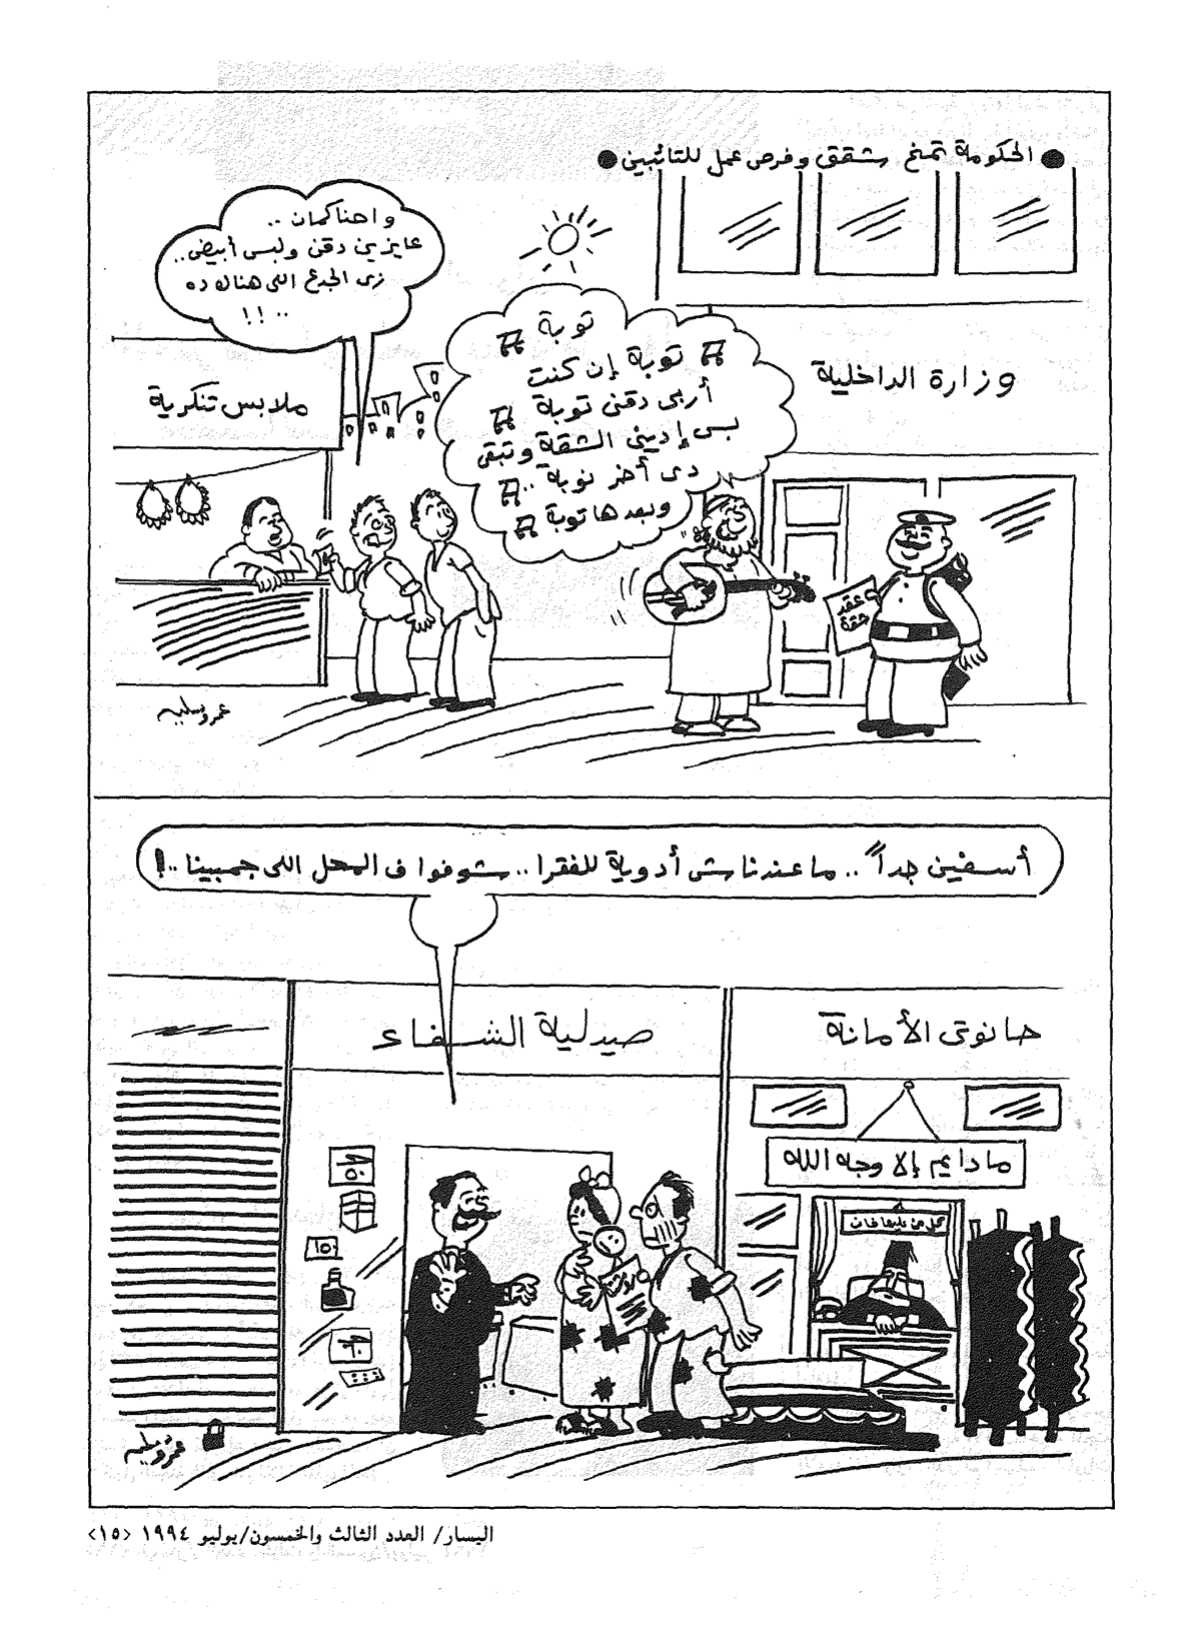 ● الحكومة تمنح شقق وفرص عمل للتائبين ●
واحنا كمان ..
عايزين دقن ولبس أبيض..
زى الجدع اللى هناك ده
.. !!
توبة
توبة إن كنت
أربى دقنى توبة
بس إدينى الشقة وتبقى
دى أخر نوبة ..
وبعدها توبة
وزارة الداخلية
ملابس تنكرية
عقد
شقة
عمرو سليم
أسفين جداً .. ما عندناش أدوية للفقرا .. شوفوا فى المحل اللى جمبينا ..!
حانوتى الأمانة
صيدلية الشفاء
ما دايم إلا وجه الله
كل من عليها فان
٥٠
١٥٠
عمرو سليم
اليسار/ العدد الثالث والخمسون/يوليو ١٩٩٤ <١٥>